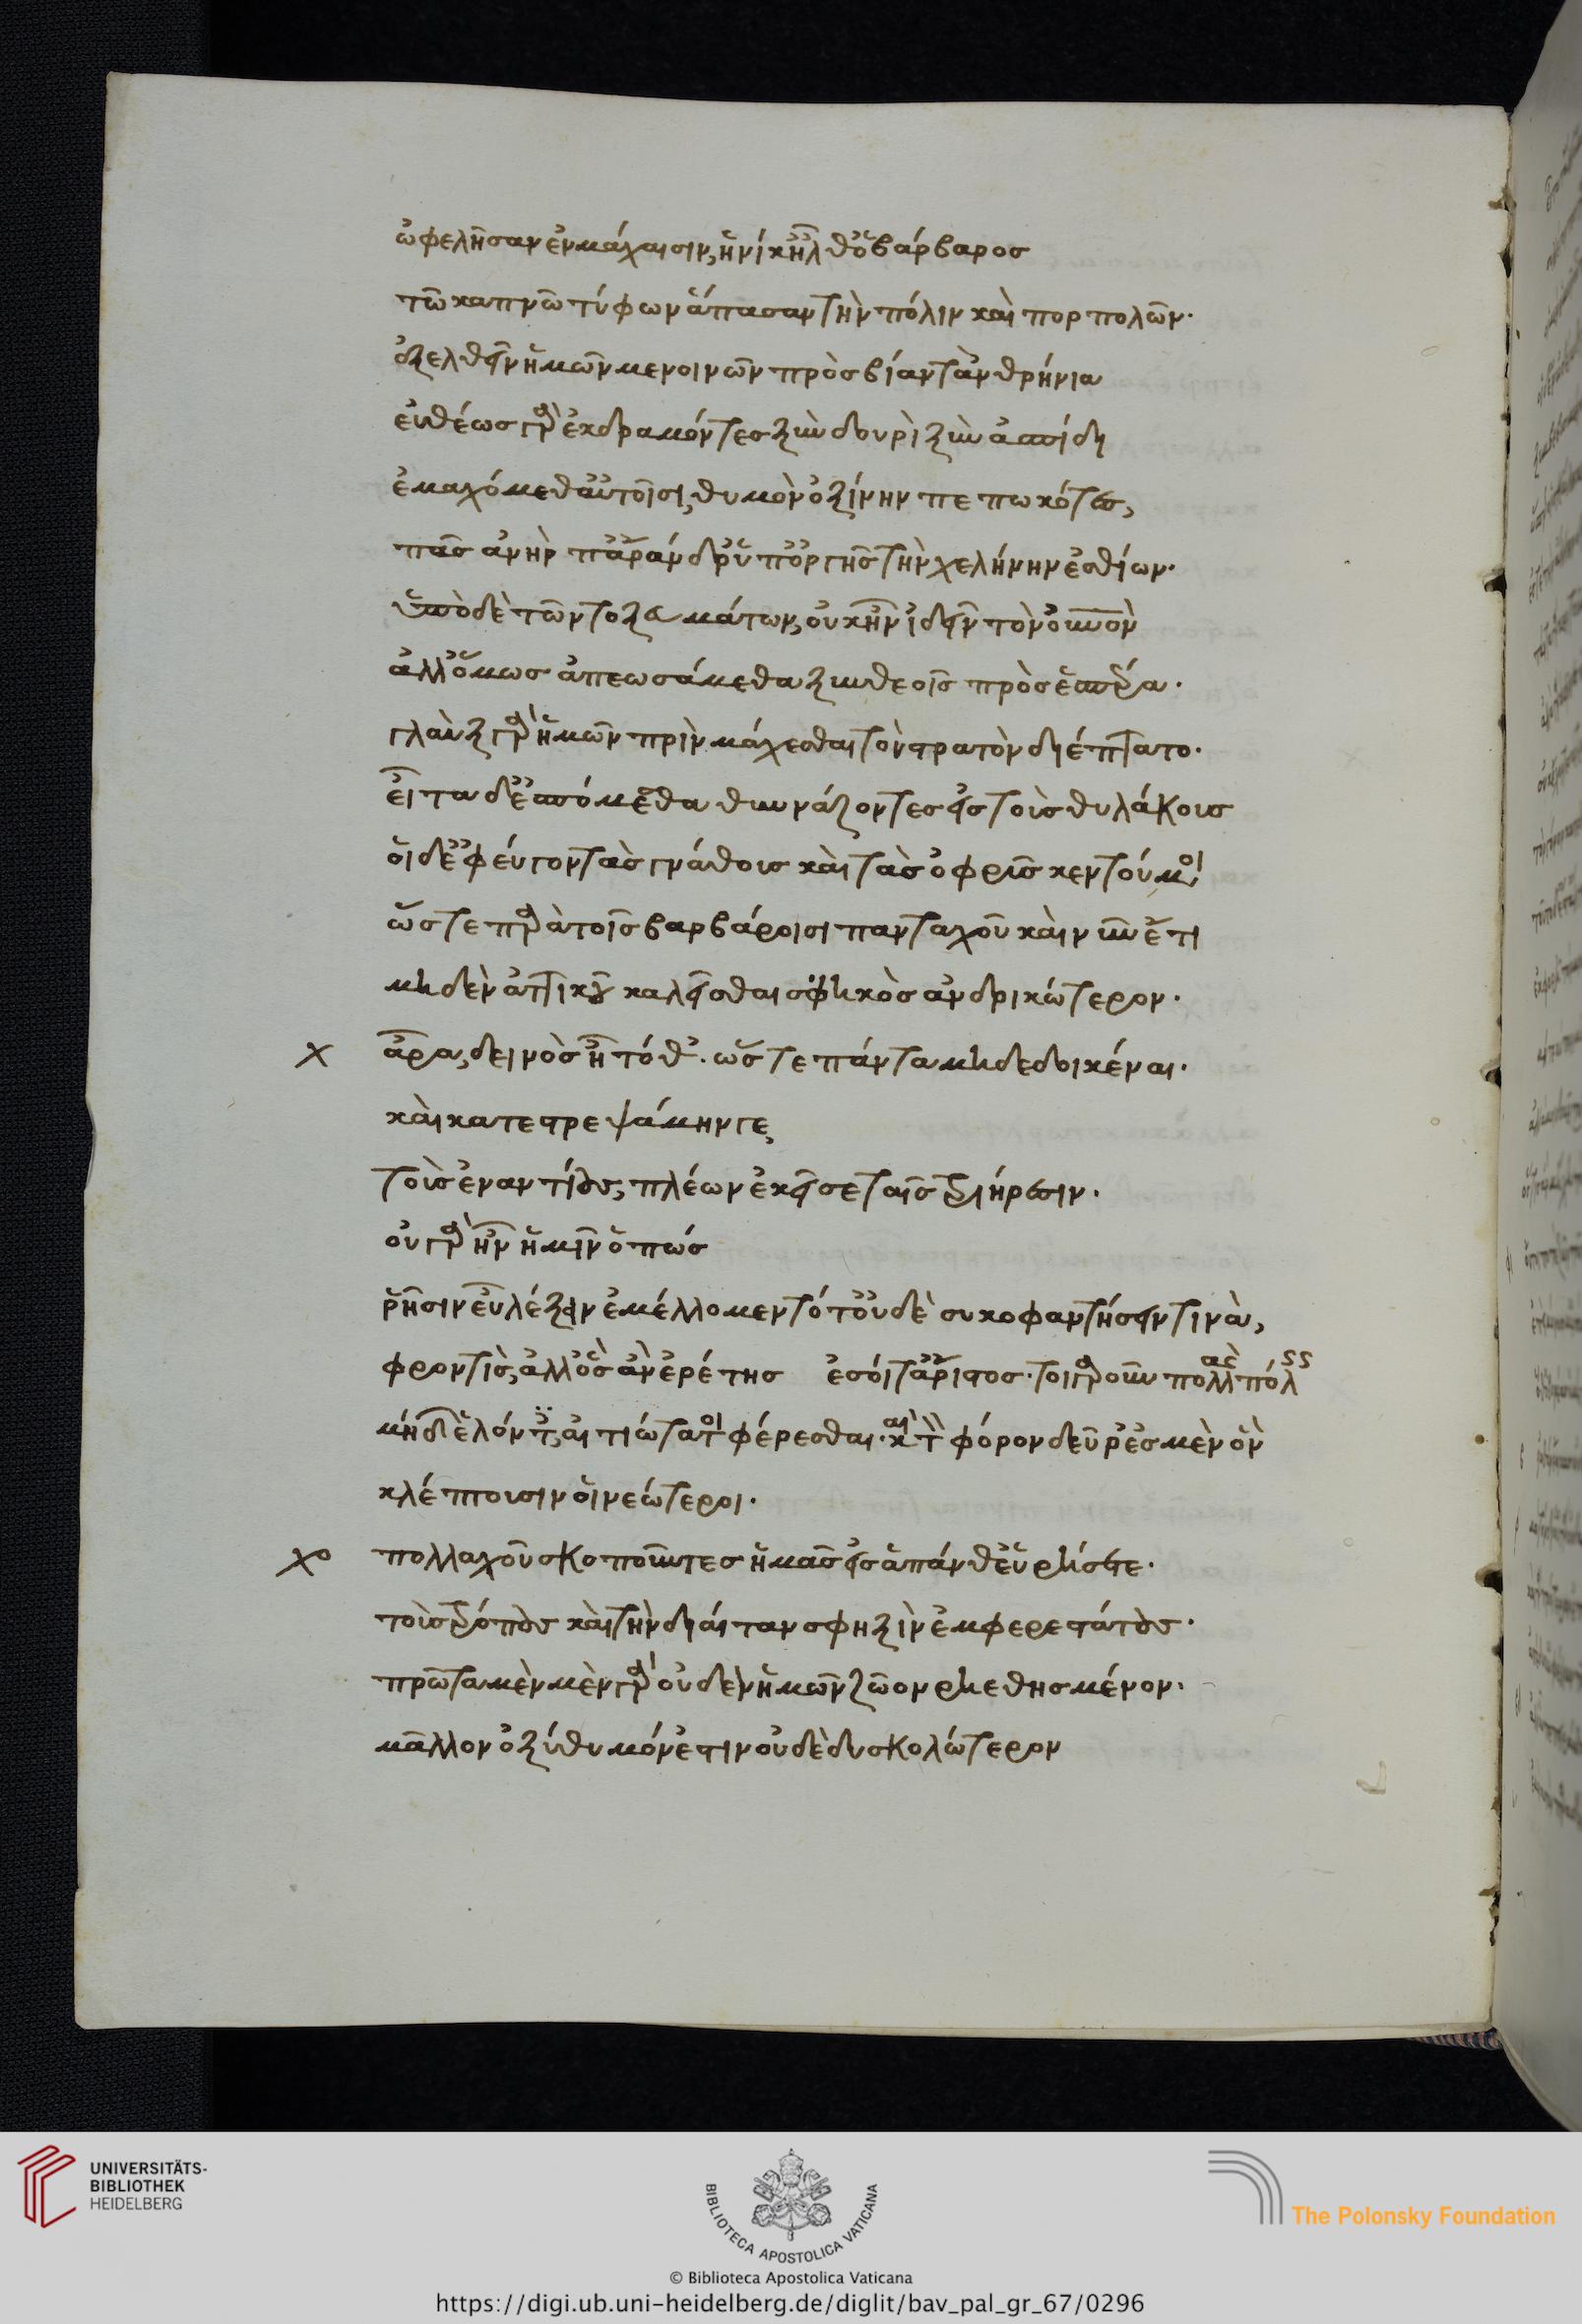 ὠφελῆσαν ἐν μάχαισιν, ἡνίκ' ἦλθ' ὁ βάρβαρος
τῶ καπνῶ τύφων ἅπασαν τὴν πόλιν καὶ πορπολῶν·
ἐξελθεῖν ἡμῶν μενοινῶν πρὸς βίαν τἀνθρήνια
εὐθέως γὰρ ἐκδραμόντες ξὺν δουρὶ ξὺν ἀσπίδι
ἐμαχόμεθ' αὐτοῖσι, θυμὸν ὀξίνην πεπωκότες,
πᾶς ἀνὴρ παρ' ἄνδρ' ὑπ' ὀργῆς τὴν χελήνην ἐσθίων·
ὑπὸ δὲ τῶν τοξευμάτων, οὐκ ἦν ἰδεῖν τὸν οὐρανὸν
ἀλλ' ὅμως ἀπεωσάμεθα ξὺν θεοῖς πρὸς ἑσπέρα·
γλαὺξ γὰρ ἡμῶν πρὶν μάχεσθαι τὸν στρατὸν διέπτατο·
εἶτα δ' ἑσπόμεθα θυννάζοντες εἰς τοὺς θυλάκους
οἱ δ' ἔφευγον τὰς γνάθους καὶ τὰς ὀφρῦς κεντούμενοι
ὥστε παρὰ τοῖς βαρβάροισι πανταχοῦ καὶ νῦν ἔτι
μηδὲν ἀττικοῦ καλεῖσθαι σφηκὸς ἀνδρικώτερον·
χ ἆρα, δεινὸς ἦ τόθ'· ὥστε πάντα μὴ δεδοικέναι·
καὶ κατεστρεψάμην γε
τοὺς ἐναντίους, πλέων ἐκεῖσε ταῖς τριήρεσιν·
οὐ γὰρ ἦν ἡμῖν ὅπως
ῥῆσιν εὖ λέξειν ἐμέλλομεν τότ' οὐδὲ συκοφαντήσειν τινὰ,
φροντὶς, ἀλλ' ὃς ἂν ἐρέτης ἔσοιτ' ἄριστος· τοιγαροῦν πολλὰς πόλεις
μήδων ἑλόντες, αἰτιώτατοι φέρεσθαι· καὶ τὸν φόρον δεῦρ' ἐσμὲν ὃν
κλέπτουσιν οἱ νεώτεροι·
χο πολλαχοῦ σκοποῦντες ἡμᾶς εἰς ἅπανθ' εὑρήσετε·
τοὺς τρόπους καὶ τὴν δίαιταν σφηξὶν ἐμφερεστάτους·
πρῶτα μὲν μὲν γὰρ οὐδὲν ἡμῶν ζῶον ἠρεθησμένον·
μᾶλλον ὀξύθυμόν ἐστιν οὐδὲ δυσκολώτερον
UNIVERSITÄTS-
BIBLIOTHEK
HEIDELBERG
BIBLIOTECA APOSTOLICA VATICANA
The Polonsky Foundation
© Biblioteca Apostolica Vaticana
https://digi.ub.uni-heidelberg.de/diglit/bav_pal_gr_67/0296